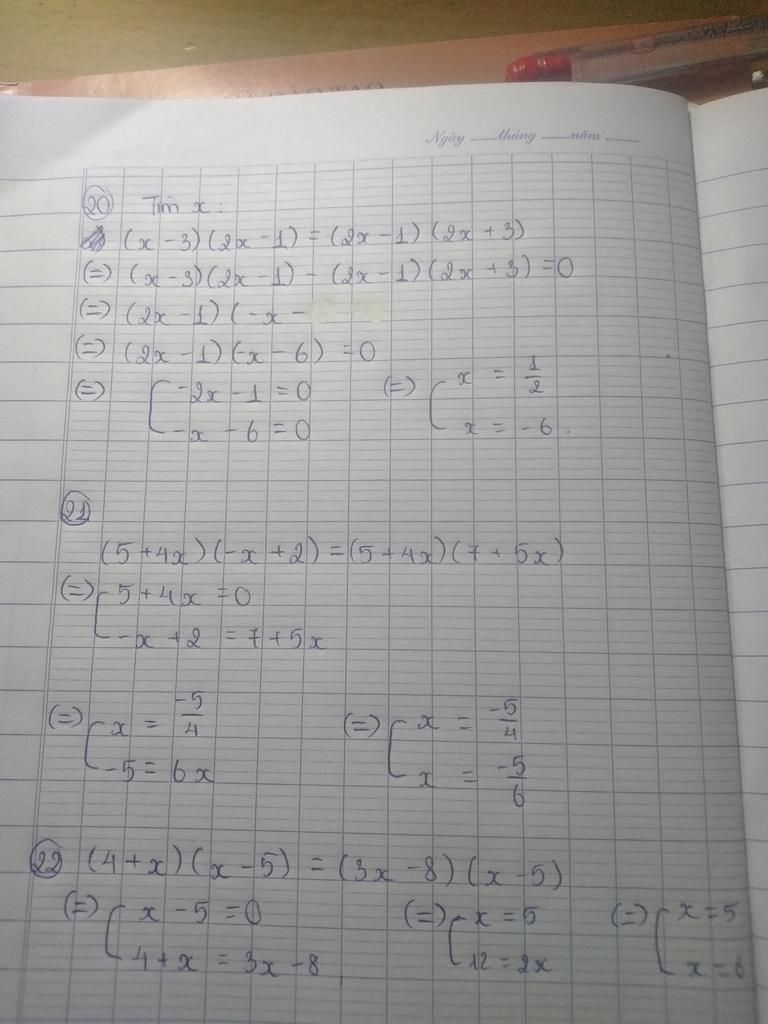 Ngày ........tháng ........năm .........
20 Tìm x :
(x - 3)(2x - 1) = (2x - 1)(2x + 3)
(=) (x - 3)(2x - 1) - (2x - 1)(2x + 3) = 0
(=) (2x - 1)(-x -
(=) (2x - 1)(-x - 6) = 0
(=) [ 2x - 1 = 0 (=) [ x = 1/2
-x - 6 = 0 x = -6.
21
(5 + 4x)(-x + 2) = (5 + 4x)(7 + 5x)
(=) [ 5 + 4x = 0
-x + 2 = 7 + 5x
(=) [ x = -5/4 (=) [ x = -5/4
-5 = 6x x = -5/6
22 (4 + x)(x - 5) = (3x - 8)(x - 5)
(=) [ x - 5 = 0 (=) [ x = 5 (=) [ x = 5
4 + x = 3x - 8 12 = 2x x = 6